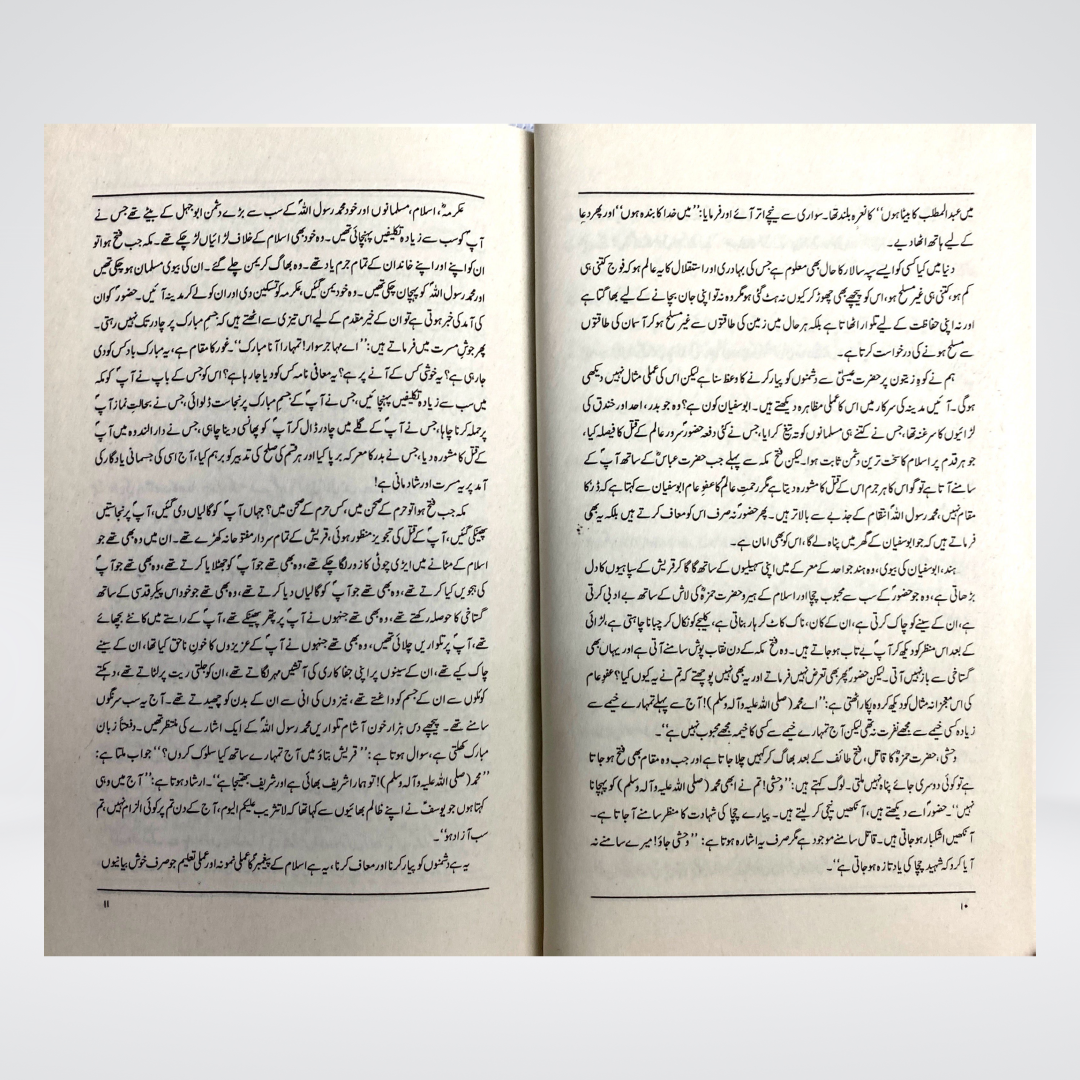 میں عبدالمطلب کا بیٹا ہوں‘‘ کا نعرہ بلند تھا۔ سواری سے نیچے اتر آئے اور فرمایا: ’’میں خدا کا بندہ ہوں‘‘ اور پھر دعا
کے لیے ہاتھ اٹھا دیے۔
دنیا میں کیا کسی کو ایسے سپہ سالار کا حال بھی معلوم ہے جس کی بہادری اور استقلال کا یہ عالم ہو کہ فوج کتنی ہی
کم ہو، کتنی ہی غیر مسلح ہو، اس کو پیچھے بھی چھوڑ کر کیوں نہ ہٹ گئی ہو مگر وہ نہ تو اپنی جان بچانے کے لیے بھاگتا ہے
اور نہ اپنی حفاظت کے لیے تلوار اٹھاتا ہے بلکہ ہر حال میں زمین کی طاقتوں سے غیر مسلح ہو کر آسمان کی طاقتوں
سے مسلح ہونے کی درخواست کرتا ہے۔
ہم نے کوہ زیتون پر حضرت عیسیٰؑ سے دشمنوں کو پیار کرنے کا وعظ سنا ہے لیکن اس کی عملی مثال نہیں دیکھی
ہوگی۔ آئیں مدینہ کی سرکار میں اس کا عملی مظاہرہ دیکھتے ہیں۔ ابوسفیان کون ہے؟ وہ جو بدر، احد اور خندق کی
لڑائیوں کا سرغنہ تھا، جس نے کتنے ہی مسلمانوں کو تہ تیغ کرایا، جس نے کئی دفعہ حضورؐ سرور عالم کے قتل کا فیصلہ کیا،
جو ہر قدم پر اسلام کا سخت ترین دشمن ثابت ہوا۔ لیکن فتح مکہ سے پہلے جب حضرت عباسؓ کے ساتھ آپؐ کے
سامنے آتا ہے تو گو اس کا ہر جرم اس کے قتل کا مشورہ دیتا ہے مگر رحمت عالمؐ کا عفو عام ابوسفیان سے کہتا ہے کہ ڈر کا
مقام نہیں، محمد رسول اللہؐ انتقام کے جذبے سے بالاتر ہیں۔ پھر حضورؐ نہ صرف اس کو معاف کرتے ہیں بلکہ یہ بھی
فرماتے ہیں کہ جو ابوسفیان کے گھر میں پناہ لے گا، اس کو بھی امان ہے۔
ہند، ابوسفیان کی بیوی، وہ ہند جو احد کے معرکے میں اپنی سہیلیوں کے ساتھ گا گا کر قریش کے سپاہیوں کا دل
بڑھاتی ہے، وہ جو حضورؐ کے سب سے محبوب چچا اور اسلام کے ہیرو حضرت حمزہؓ کی لاش کے ساتھ بے ادبی کرتی
ہے، ان کے سینے کو چاک کرتی ہے، ان کے کان، ناک کاٹ کر ہار بناتی ہے، کلیجے کو نکال کر چبانا چاہتی ہے، لڑائی
کے بعد اس منظر کو دیکھ کر آپ بے تاب ہو جاتے ہیں۔ وہ فتح مکہ کے دن نقاب پوش سامنے آتی ہے اور یہاں بھی
گستاخی سے باز نہیں آتی۔ لیکن حضورؐ پھر بھی تعرض نہیں فرماتے اور یہ بھی نہیں پوچھتے کہ تم نے یہ کیوں کیا؟ عفو عام
کی اس معجزانہ مثال کو دیکھ کر وہ پکار اٹھتی ہے: ’’اے محمد (صلی اللہ علیہ وآلہ وسلم)! آج سے پہلے تمہارے خیمے سے
زیادہ کسی خیمے سے مجھے نفرت نہ تھی لیکن آج تمہارے خیمے سے کسی کا خیمہ مجھے محبوب نہیں ہے‘‘۔
وحشی، حضرت حمزہؓ کا قاتل، فتح طائف کے بعد بھاگ کر کہیں چلا جاتا ہے اور جب وہ مقام بھی فتح ہو جاتا
ہے تو کوئی دوسری جائے پناہ نہیں ملتی۔ لوگ کہتے ہیں: ’’وحشی! تم نے ابھی محمد (صلی اللہ علیہ وآلہ وسلم) کو پہچانا
نہیں‘‘۔ حضورؐ اسے دیکھتے ہیں، آنکھیں نیچی کر لیتے ہیں۔ پیارے چچا کی شہادت کا منظر سامنے آ جاتا ہے۔
آنکھیں اشکبار ہو جاتی ہیں۔ قاتل سامنے موجود ہے مگر صرف یہ اشارہ ہوتا ہے: ’’وحشی جاؤ! میرے سامنے نہ
آیا کرو کہ شہید چچا کی یاد تازہ ہو جاتی ہے‘‘۔
۱۰
عکرمہؓ، اسلام، مسلمانوں اور خود محمد رسول اللہؐ کے سب سے بڑے دشمن ابو جہل کے بیٹے تھے جس نے
آپؐ کو سب سے زیادہ تکلیفیں پہنچائی تھیں۔ وہ خود بھی اسلام کے خلاف لڑائیاں لڑ چکے تھے۔ مکہ جب فتح ہوا تو
ان کو اپنے اور اپنے خاندان کے تمام جرم یاد تھے۔ وہ بھاگ کر یمن چلے گئے۔ ان کی بیوی مسلمان ہو چکی تھیں
اور محمد رسول اللہؐ کو پہچان چکی تھیں۔ وہ خود یمن گئیں، عکرمہ کو تسکین دی اور ان کو لے کر مدینہ آئیں۔ حضورؐ کو ان
کی آمد کی خبر ہوتی ہے تو ان کے خیر مقدم کے لیے اس تیزی سے اٹھتے ہیں کہ جسم مبارک پر چادر تک نہیں رہتی۔
پھر جوش مسرت میں فرماتے ہیں: ’’اے مہاجر سوار! تمہارا آنا مبارک‘‘۔ غور کا مقام ہے، یہ مبارک باد کس کو دی
جا رہی ہے؟ یہ خوشی کس کے آنے پر ہے؟ یہ معافی نامہ کس کو دیا جا رہا ہے؟ اس کو جس کے باپ نے آپؐ کو مکہ
میں سب سے زیادہ تکلیفیں پہنچائیں، جس نے آپؐ کے جسم مبارک پر نجاست ڈلوائی، جس نے بحالت نماز آپؐ
پر حملہ کرنا چاہا، جس نے آپؐ کے گلے میں چادر ڈال کر آپؐ کو پھانسی دینا چاہی، جس نے دار الندوہ میں آپؐ
کے قتل کا مشورہ دیا، جس نے بدر کا معرکہ برپا کیا اور ہر قسم کی صلح کی تدبیر کو برہم کیا، آج اسی کی جسمانی یادگار کی
آمد پر یہ مسرت اور شادمانی ہے!
مکہ جب فتح ہوا تو حرم کے صحن میں، کس حرم کے صحن میں؟ جہاں آپؐ کو گالیاں دی گئیں، آپؐ پر نجاستیں
پھینکی گئیں، آپؐ کے قتل کی تجویز منظور ہوئی، قریش کے تمام سردار مفتوحانہ کھڑے تھے۔ ان میں وہ بھی تھے جو
اسلام کے مٹانے میں ایڑی چوٹی کا زور لگا چکے تھے، وہ بھی تھے جو آپؐ کو جھٹلایا کرتے تھے، وہ بھی تھے جو آپؐ
کی ہجویں کیا کرتے تھے، وہ بھی تھے جو آپؐ کو گالیاں دیا کرتے تھے، وہ بھی تھے جو خود اس پیکر قدسی کے ساتھ
گستاخی کا حوصلہ رکھتے تھے، وہ بھی تھے جنہوں نے آپؐ پر پتھر پھینکے تھے، آپؐ کے راستے میں کانٹے بچھائے
تھے، آپؐ پر تلواریں چلائی تھیں، وہ بھی تھے جنہوں نے آپؐ کے عزیزوں کا خون ناحق کیا تھا، ان کے سینے
چاک کیے تھے، ان کے سینوں پر اپنی جفا کاری کی آتشیں مہر لگاتے تھے، ان کو جلتی ریت پر لٹاتے تھے، دہکتے
کوئلوں سے ان کے جسم کو داغتے تھے، نیزوں کی انی سے ان کے بدن کو چھیدتے تھے۔ آج یہ سب سرنگوں
سامنے تھے۔ پیچھے دس ہزار خون آشام تلواریں محمد رسول اللہؐ کے ایک اشارے کی منتظر تھیں۔ دفعتاً زبان
مبارک کھلتی ہے، سوال ہوتا ہے: ’’قریش بتاؤ میں آج تمہارے ساتھ کیا سلوک کروں؟‘‘ جواب ملتا ہے:
’’محمد (صلی اللہ علیہ وآلہ وسلم)! تو ہمارا شریف بھائی ہے اور شریف بھتیجا ہے‘‘۔ ارشاد ہوتا ہے: ’’آج میں وہی
کہتا ہوں جو یوسفؑ نے اپنے ظالم بھائیوں سے کہا تھا کہ لا تثریب علیکم الیوم، آج کے دن تم پر کوئی الزام نہیں، تم
سب آزاد ہو‘‘۔
یہ ہے دشمنوں کو پیار کرنا اور معاف کرنا، یہ ہے اسلام کے پیغمبرؐ کا عملی نمونہ اور عملی تعلیم جو صرف خوش بیانیوں
۱۱